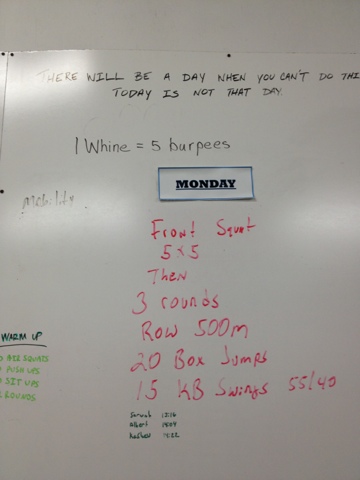 THERE WILL BE A DAY WHEN YOU CAN'T DO THI
TODAY IS NOT THAT DAY.
1 Whine = 5 burpees
MONDAY
mobility
Front Squat
5x5
Then
3 rounds
Row 500m
20 Box Jumps
15 KB Swings 55/40
WARM UP
AIR SQUATS
PUSH UPS
SIT UPS
ROUNDS
Albert